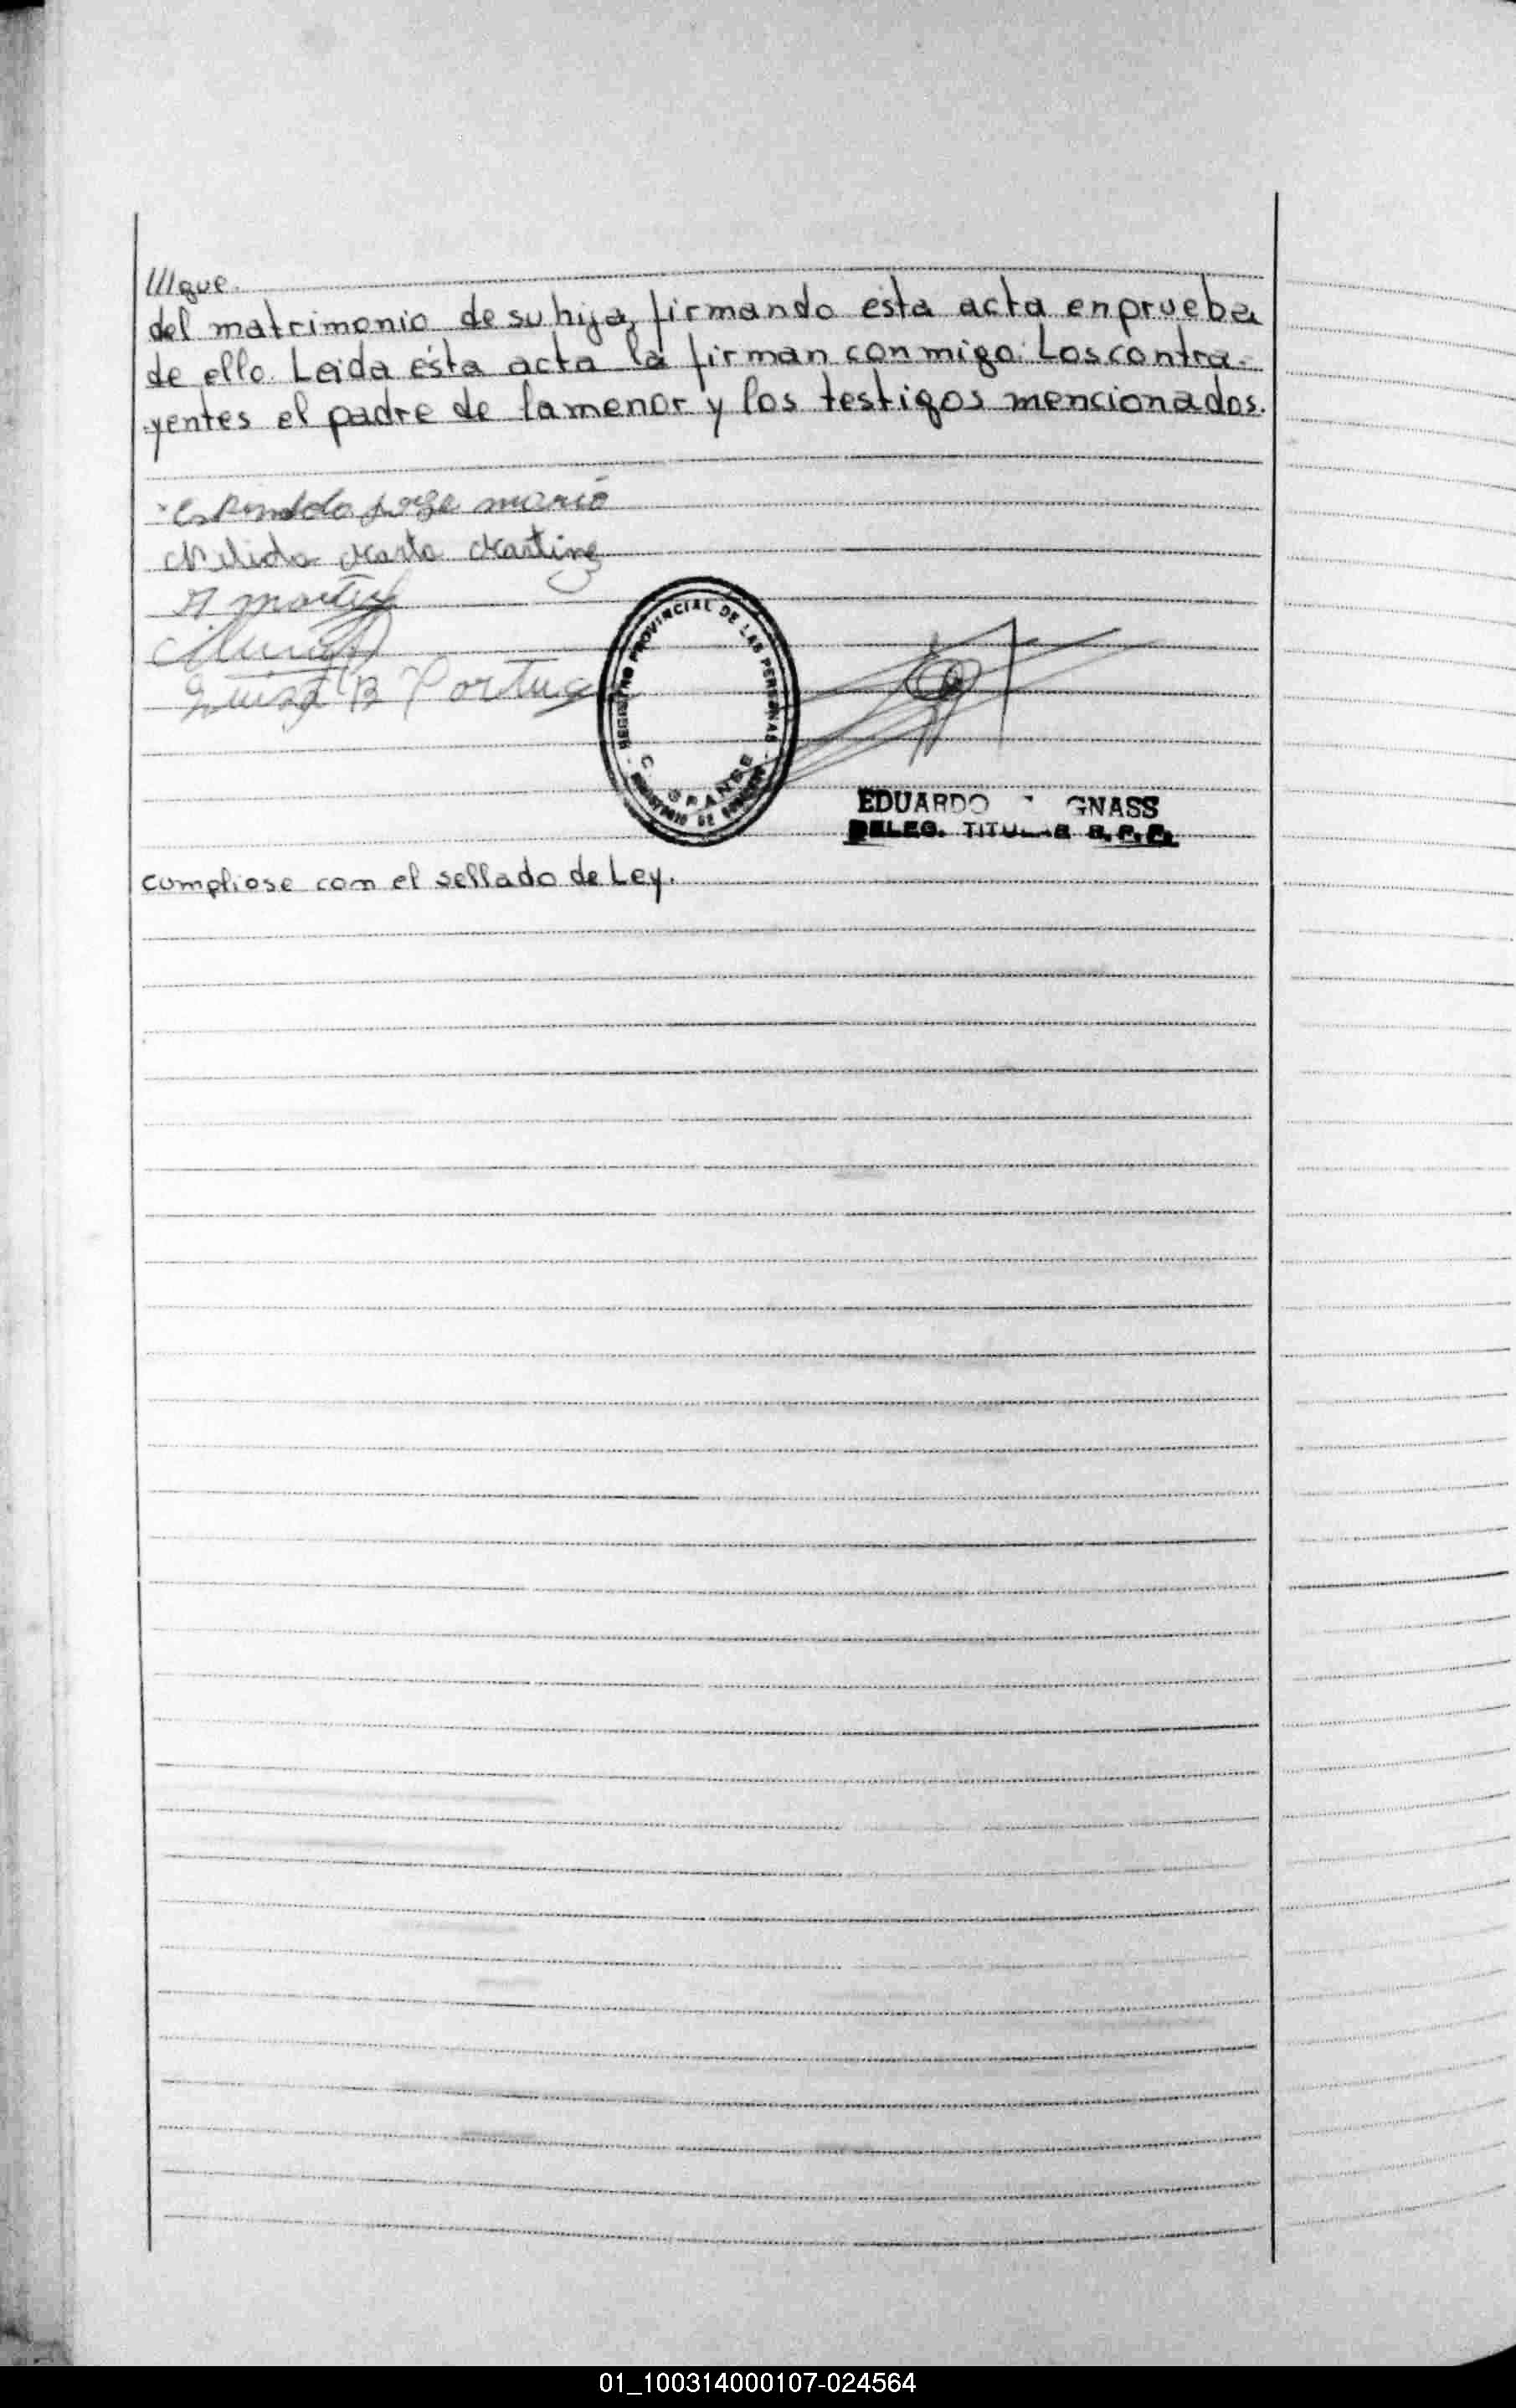 ///gue.
del matrimonio de su hija, firmando ésta acta en prueba
de ello. Leída ésta acta la firman conmigo: Los contra-
yentes el padre de la menor y los testigos mencionados.
Espindola Jorge mario
Nelida Marta Martinez
Luisa B Portug
REGISTRO PROVINCIAL DE LAS PERSONAS
C. GRANDE
EDUARDO GNASS
DELEG. TITULAR R.P.P.
cumpliose con el sellado de Ley.
01_100314000107-024564